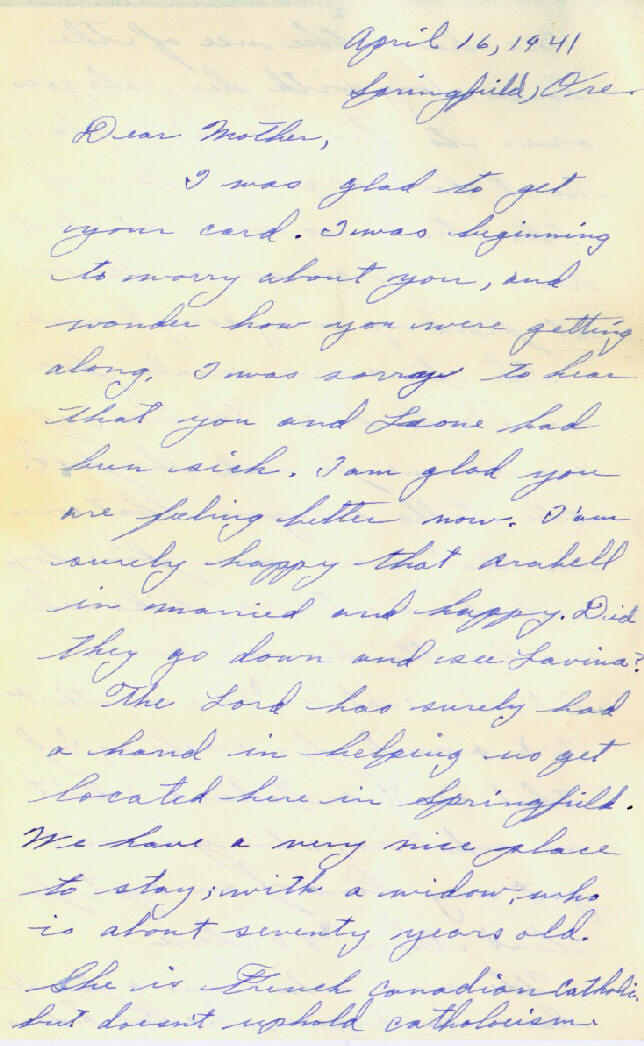 April 16, 1941
Springfield, Ore.
Dear Mother,
I was glad to get
your card. I was beginning
to worry about you, and
wonder how you were getting
along. I was sorry to hear
that you and Leone had
been sick. I am glad you
are feeling better now. I am
surely happy that Arabell
in married and happy. Did
they go down and see Lavina?
The Lord has surely had
a hand in helping us get
located here in Springfield.
We have a very nice place
to stay; with a widow, who
is about seventy years old.
She is French Canadian Catholic
but doesn't uphold catholocism.